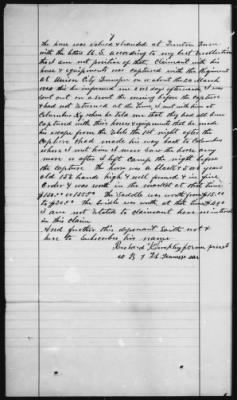 the horse was valued & branded at Trenton Tenn
with the letters U.S. according to my best recollection
but I am not positive of that, Claimant with his
horse & equipments was captured with the Regiment
at Union City Tennessee on or about the 24 March
1864 this he informed me a few days afterwards, I was
sent out on a scout the evening before the capture
& had not returned at the time, I met with him at
Columbus Ky when he told me that they had all been
captured with their horses & equipments that he made
his escape from the Rebs the night after the
Capture & had made his way back to Columbus
where I met him I never saw the horse any
more after I left Camp the night before
the capture The horse was a black 5 or 6 years
old 15½ hands high & well formed & in fine
order & was worth in the market at that time
The saddle was worth from $15.00
to $20.00 the bridle was worth at that time
I am not related to claimant have no interest
in this claim
And further this deponent saith not &
here to subscribes his name
Richard
Co B 7 Tennessee Cav